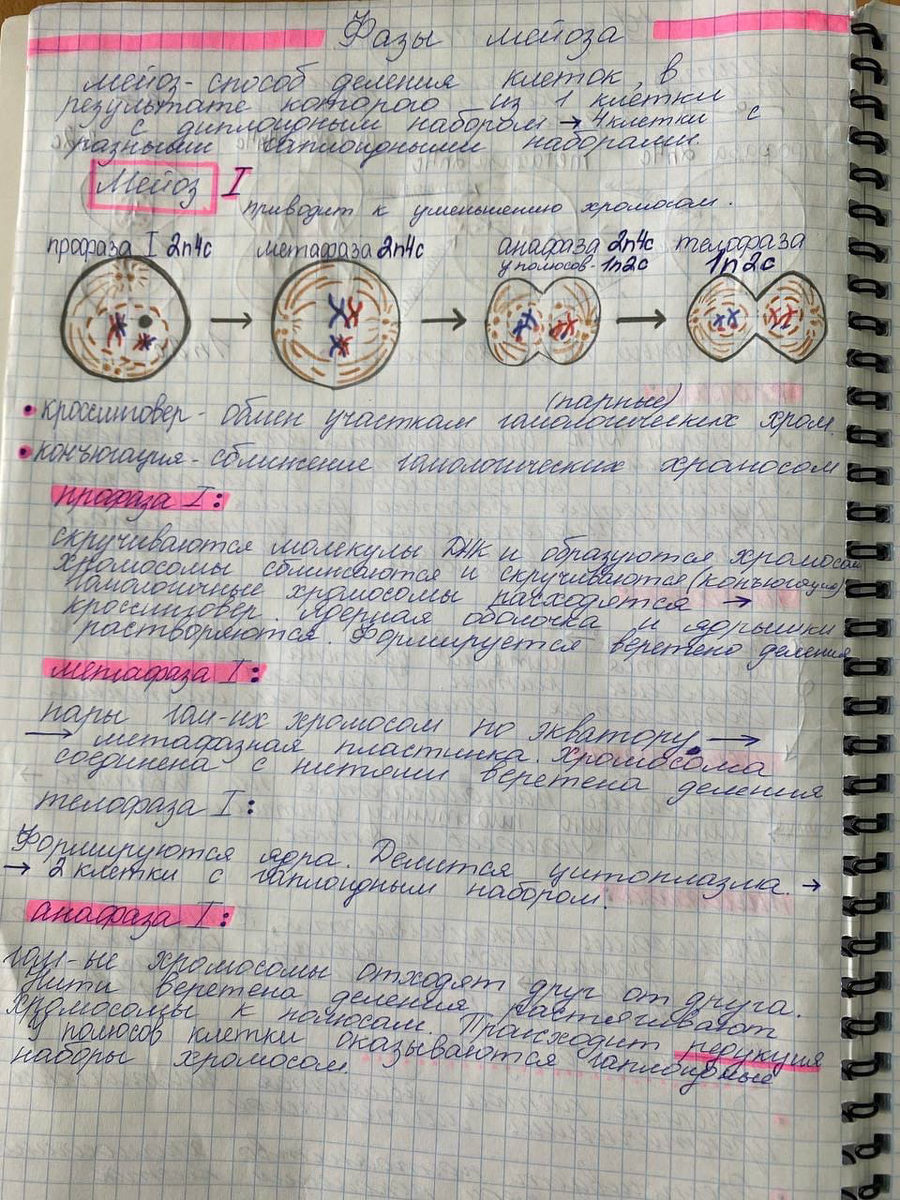 Фазы мейоза
мейоз-способ деления клеток, в
результате которого из 1 клетки
с диплоидным набором → 4 клетки с
разными гаплоидными наборами.
Мейоз I
приводит к уменьшению хромосом.
профаза I 2n4c метафаза 2n4c анафаза 2n4c телофаза
у полюсов-1n2c 1n2c
(парные)
• кроссинговер - обмен участкам гамологических хром.
• конъюгация - сближение гамологических хромосом
профаза I:
скручиваются молекулы ДНК и образуются хромосом
хромосомы сближаются и скручиваются (конъюгация)
Гамалогичные хромосомы расходятся →
кроссинговер. Ядерная оболочка и ядрышки
растворяются. Формируется веретено деления
метафаза I:
пары гом-их хромосом по экватору →
→ метафазная пластинка. Хромосома
соединена с нитями веретена деления
телофаза I:
Формируются ядра. Делится цитоплазма. →
→ 2 клетки с гаплоидным набором.
анафаза I:
гом-ые хромосомы отходят друг от друга.
Нити веретена деления растягивают
хромосомы к полюсам. Происходит редукция
У полюсов клетки оказываются гаплоидные
наборы хромосом